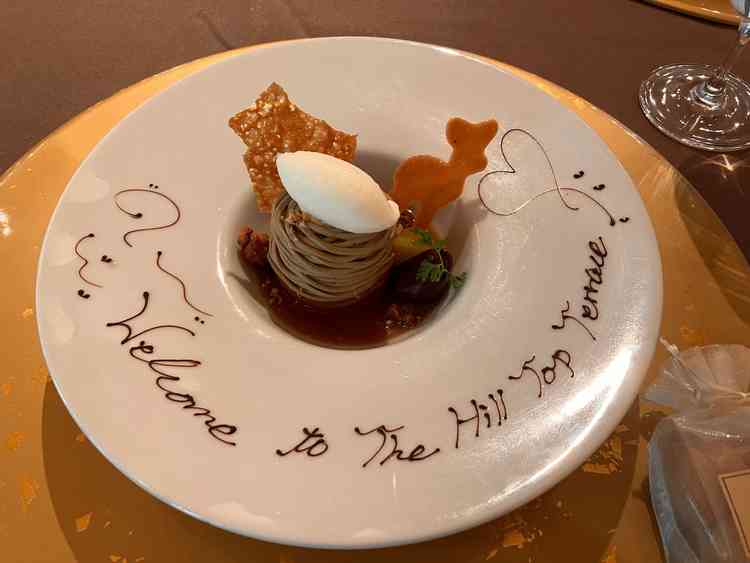 Welcome to The Hill Top Terrace